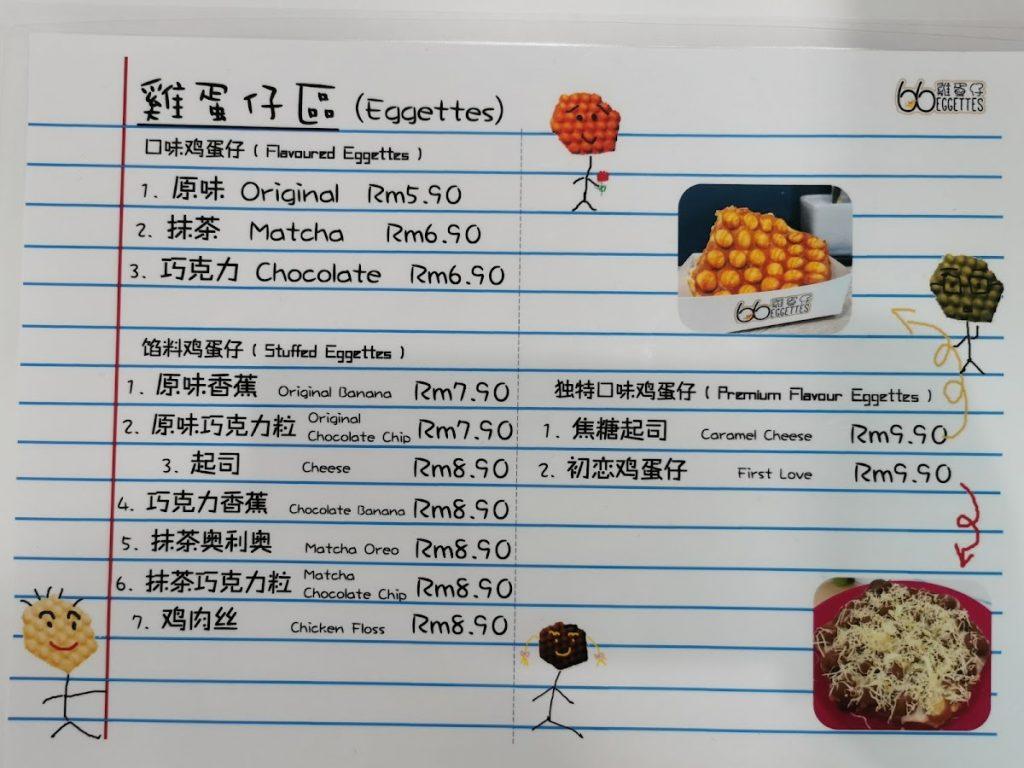 雞蛋仔區 (Eggettes)
66雞蛋仔
EGGETTES
口味鸡蛋仔 ( Flavoured Eggettes )
1. 原味 Original Rm5.90
2. 抹茶 Matcha Rm6.90
3. 巧克力 Chocolate Rm6.90
66雞蛋仔
EGGETTES
馅料鸡蛋仔 ( Stuffed Eggettes )
1. 原味香蕉 Original Banana Rm7.90
2. 原味巧克力粒 Original Chocolate Chip Rm7.90
3. 起司 Cheese Rm8.90
4. 巧克力香蕉 Chocolate Banana Rm8.90
5. 抹茶奥利奥 Matcha Oreo Rm8.90
6. 抹茶巧克力粒 Matcha Chocolate Chip Rm8.90
7. 鸡肉丝 Chicken Floss Rm8.90
独特口味鸡蛋仔 ( Premium Flavour Eggettes )
1. 焦糖起司 Caramel Cheese Rm9.90
2. 初恋鸡蛋仔 First Love Rm9.90